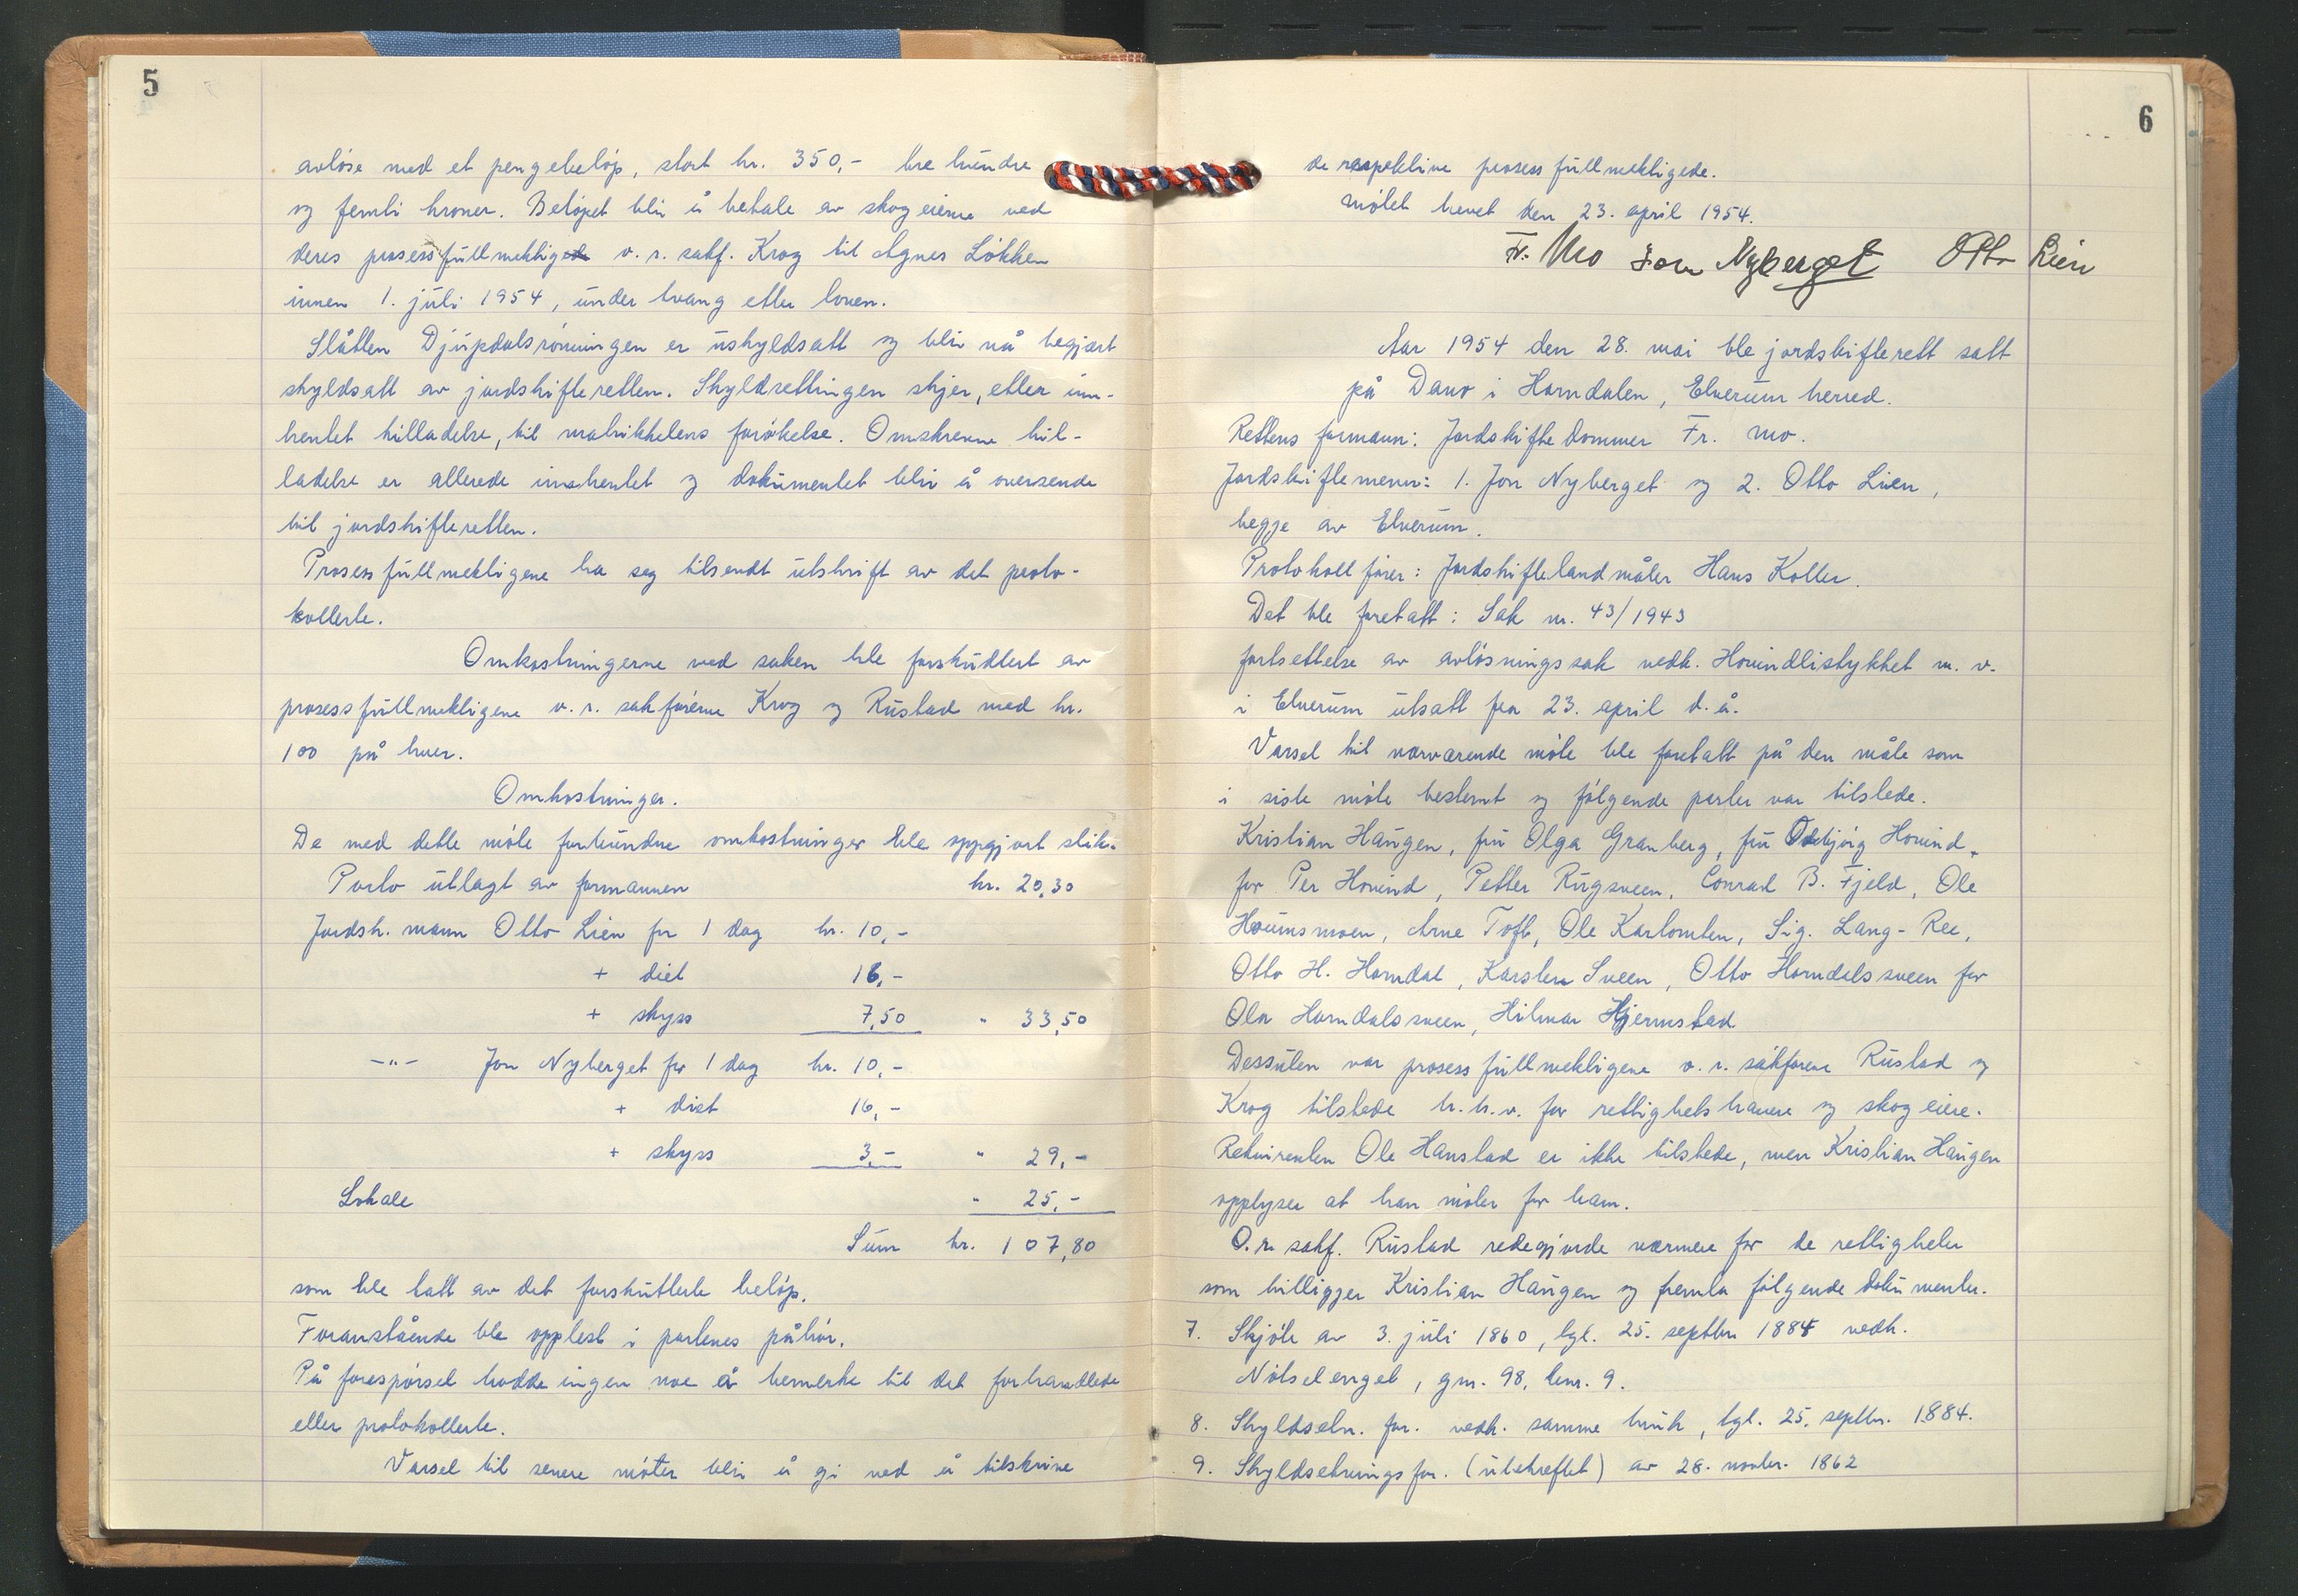 5
avløse med et pengebeløp, stort kr. 350,- tre hundre
og femti kroner. Beløpet blir å betale av skogeierne ved
deres prosessfullmektig o.r. sakf. Krog til Agnes Løkken
innen 1. juli 1954, under tvang etter loven.
Slåtten Djupdalsrønningen er uskyldsatt og blir nå begjært
skyldsatt av jordskifteretten. Skyldsettingen skjer, etter inn-
hentet tilladelse, til matrikkelens forøkelse. Omskrevne til-
ladelse er allerede innhentet og dokumentet blir å oversende
til jordskifteretten.
Prosessfullmektigene ba seg tilsendt utskrift av det proto-
kollerte.
Omkostningerne ved saken ble forskuttert av
prosessfullmektigene o.r. sakførerne Krog og Rustad med kr.
100 på hver.
Omkostninger.
De med dette møte forbundne omkostninger ble oppgjort slik:
Porto utlagt av formannen kr. 20,30
Jordsk. mann Otto Lien for 1 dag kr. 10,-
+ diet 16,-
+ skyss 7,50 " 33,50
-"- Jon Nyberget for 1 dag kr. 10,-
+ diet 16,-
+ skyss 3,- " 29,-
Lokale " 25,-
Sum kr. 107,80
som ble tatt av det forskutterte beløp.
Foranstående ble opplest i partenes påhør.
På forespørsel hadde ingen noe å bemerke til det forhandlede
eller protokollerte.
Varsel til senere møter blir å gi ved å tilskrive
6
de respektive prosessfullmektigede.
Møtet hevet den 23. april 1954.
Fr. Mo Jon Nyberget Otto Lien
Aar 1954 den 28. mai ble jordskifterett satt
på Damo i Horndalen, Elverum herred.
Rettens formann: Jordskiftedommer Fr. Mo.
Jordskiftemenn: 1. Jon Nyberget og 2. Otto Lien,
begge av Elverum.
Protokollfører: Jordskiftelandmåler Hans Koller.
Det ble foretatt: Sak nr. 43/1943
fortsettelse av avløsningssak vedk. Hovindlistykket m. v.
i Elverum utsatt fra 23. april d.å.
Varsel til nærværende møte ble foretatt på den måte som
i siste møte bestemt og følgende parter var tilstede.
Kristian Haugen, fru Olga Granberg, fru Oddbjørg Hovind,
for Per Hovind, Petter Rugsveen, Conrad B. Fjeld, Ole
Houmsmoen, Arne Toft, Ole Karlomten, Sig. Lang-Ree,
Otto H. Horndal, Karsten Sveen, Otto Horndalssveen for
Ola Horndalssveen, Hilmar Hjermstad
Dessuten var prosessfullmektigene o.r. sakførere Rustad og
Krog tilstede h.h.v. for rettighetshavere og skogeiere.
Rekvirenten Ole Hanstad er ikke tilstede, men Kristian Haugen
opplyser at han møter for ham.
O.r. sakf. Rustad redegjorde nærmere for de rettigheter
som tilligger Kristian Haugen og fremla følgende dokumenter.
7. Skjøte av 3. juli 1860, tgl. 25. septbr. 1884 vedk.
Nøtselenget, gnr. 98, bnr. 9.
8. Skyldseln. for. vedk. samme bruk, tgl. 25. septbr. 1884.
9. Skyldsetningsfor. (ubekreftet) av 28. novbr. 1862